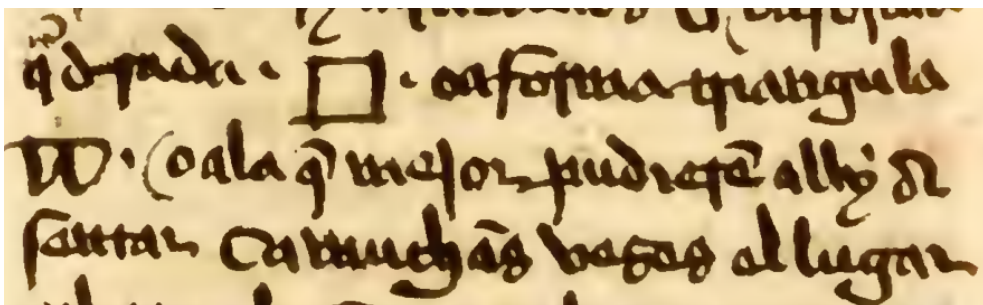 q̃drada · □ · o a forma triangula
· o a la q̃ mejor pudierẽ allỹ
sentar Ca muchãs vezes el lugar